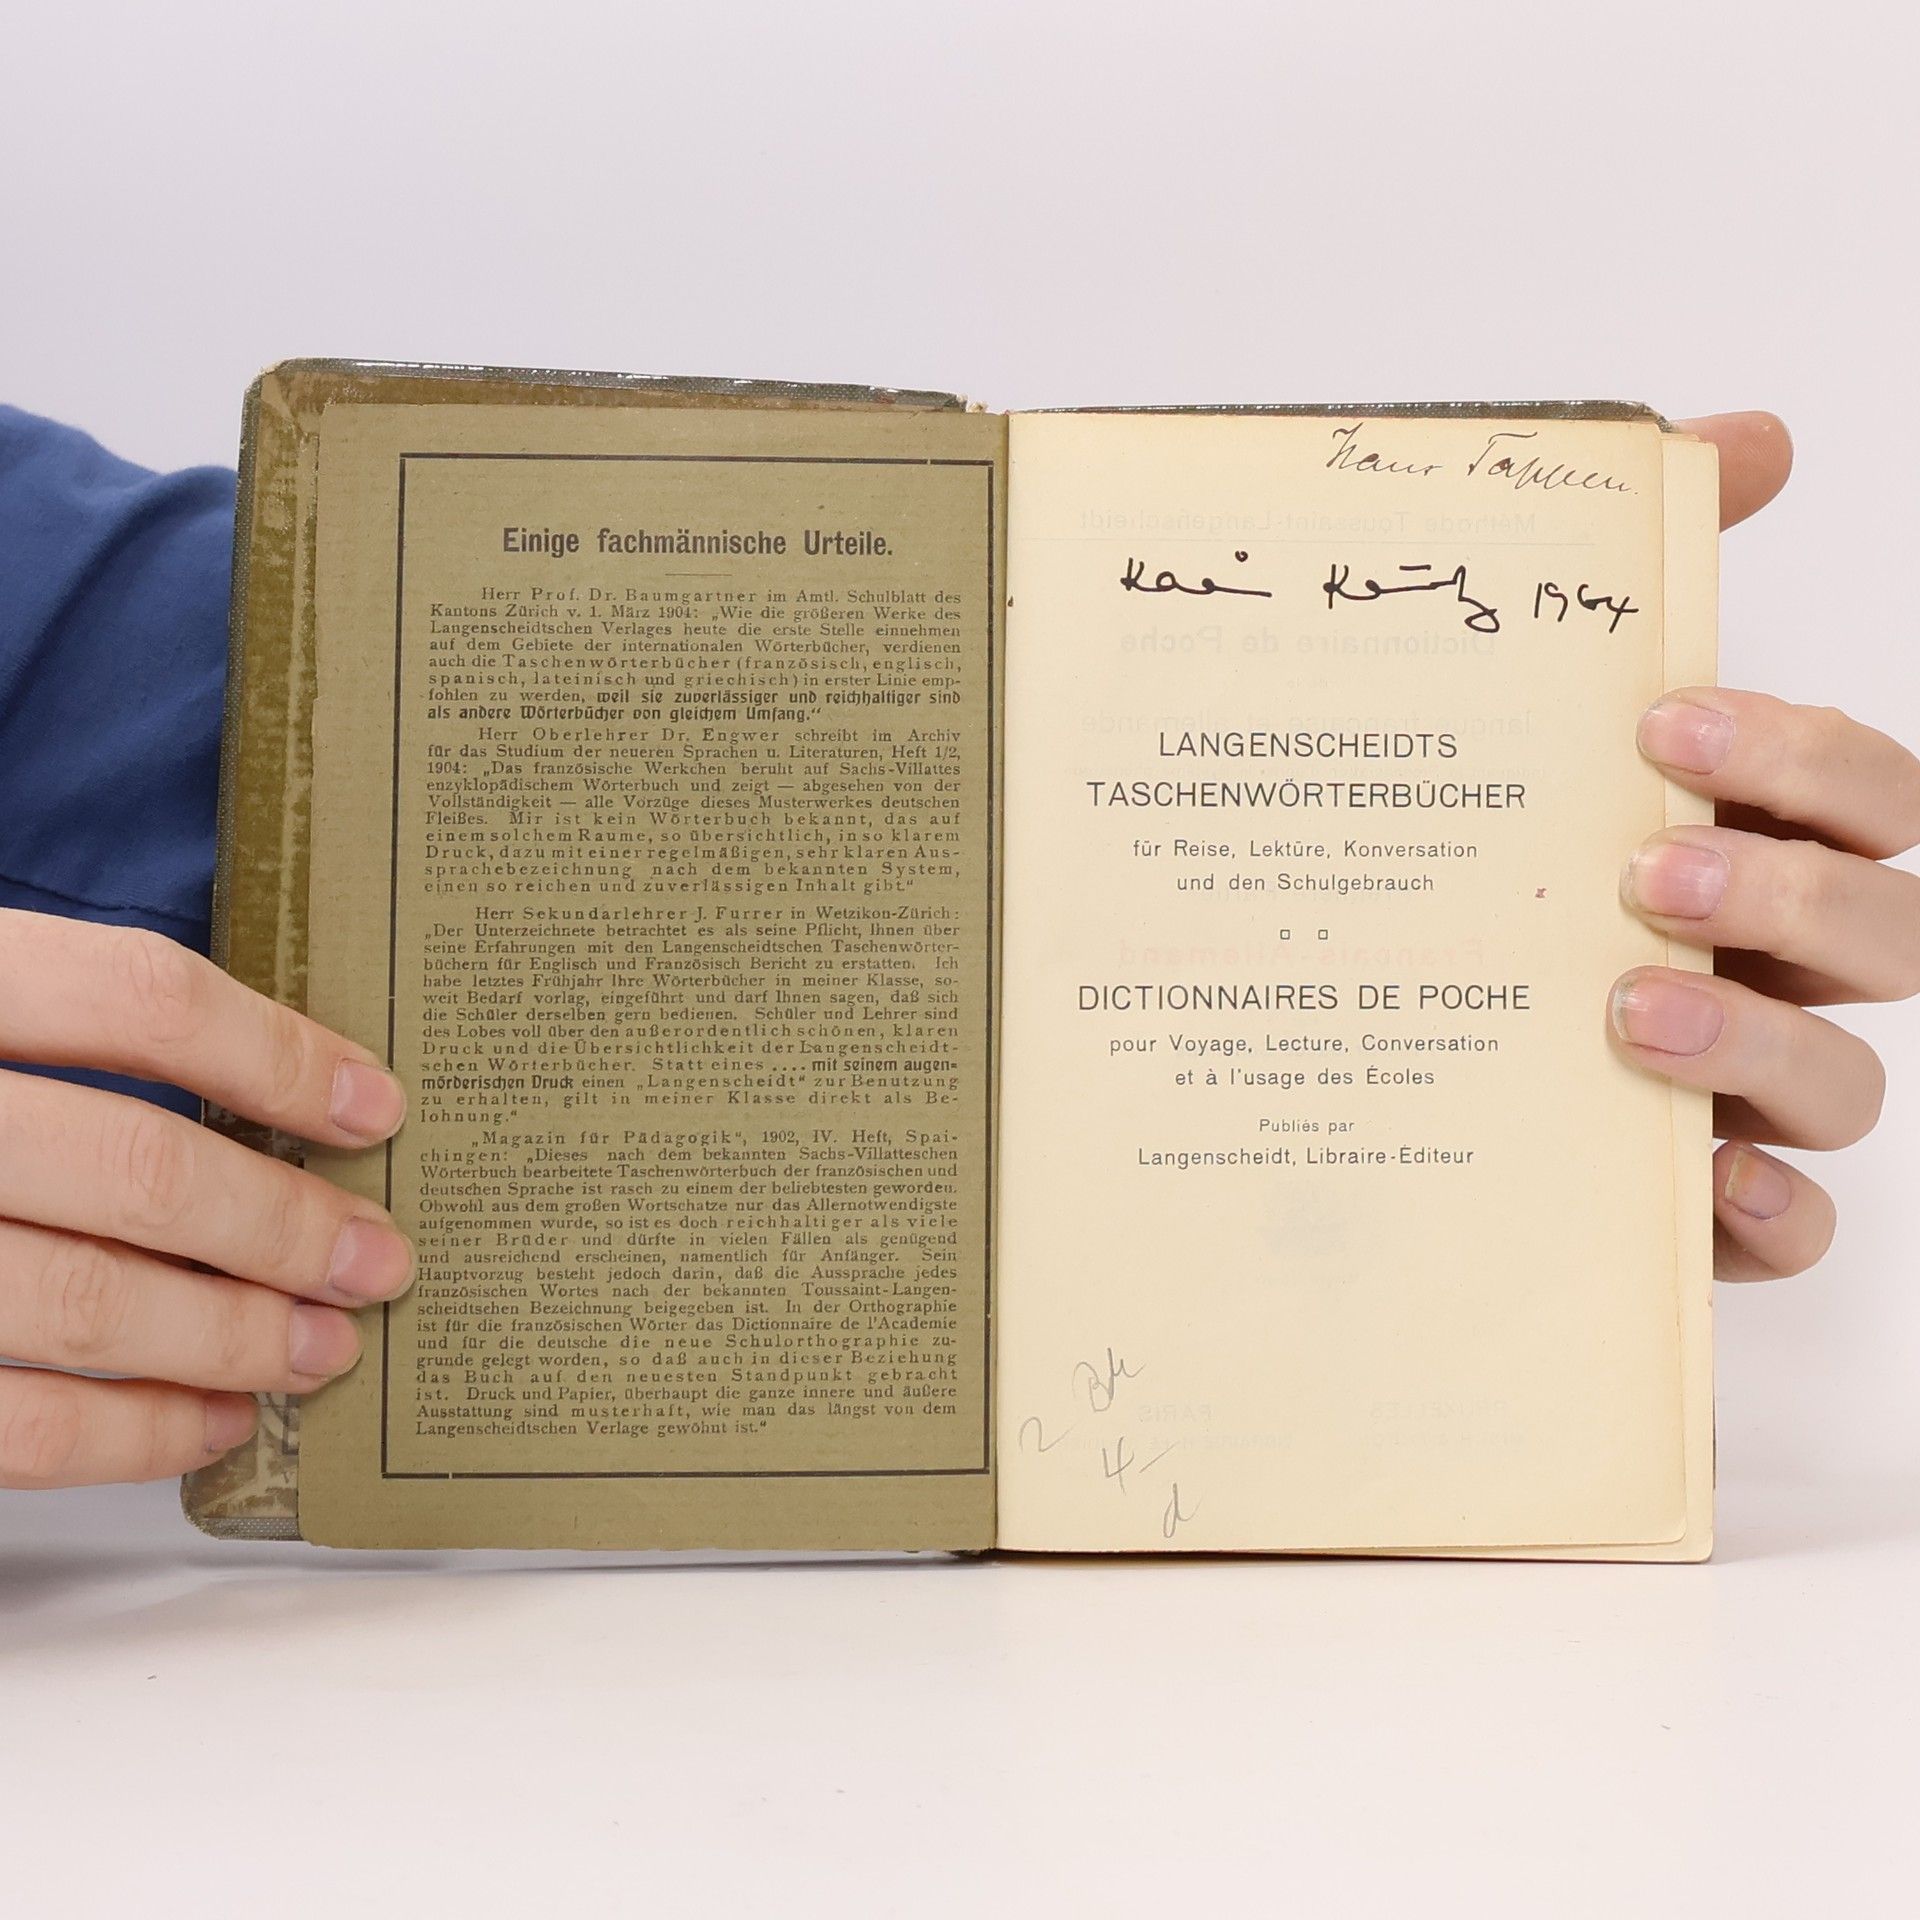 Einige fachmännische Urteile.
Herr Prof. Dr. Baumgartner im Amtl. Schulblatt des
Kantons Zürich v. 1. März 1904: „Wie die größeren Werke des
Langenscheidtschen Verlages heute die erste Stelle einnehmen
auf dem Gebiete der internationalen Wörterbücher, verdienen
auch die Taschenwörterbücher (französisch, englisch,
spanisch, lateinisch und griechisch) in erster Linie emp-
fohlen zu werden, weil sie zuverlässiger und reichhaltiger sind
als andere Wörterbücher von gleichem Umfang.“
Herr Oberlehrer Dr. Engwer schreibt im Archiv
für das Studium der neueren Sprachen u. Literaturen, Heft 1/2,
1904: „Das französische Werkchen beruht auf Sachs-Villattes
enzyklopädischem Wörterbuch und zeigt — abgesehen von der
Vollständigkeit — alle Vorzüge dieses Musterwerkes deutschen
Fleißes. Mir ist kein Wörterbuch bekannt, das auf
einem solchem Raume, so übersichtlich, in so klarem
Druck, dazu mit einer regelmäßigen, sehr klaren Aus-
sprachebezeichnung nach dem bekannten System,
einen so reichen und zuverlässigen Inhalt gibt.“
Herr Sekundarlehrer J. Furrer in Wetzikon-Zürich:
„Der Unterzeichnete betrachtet es als seine Pflicht, Ihnen über
seine Erfahrungen mit den Langenscheidtschen Taschenwörter-
büchern für Englisch und Französisch Bericht zu erstatten. Ich
habe letztes Frühjahr Ihre Wörterbücher in meiner Klasse, so-
weit Bedarf vorlag, eingeführt und darf Ihnen sagen, daß sich
die Schüler derselben gern bedienen. Schüler und Lehrer sind
des Lobes voll über den außerordentlich schönen, klaren
Druck und die Übersichtlichkeit der Langenscheidt-
schen Wörterbücher. Statt eines .... mit seinem augen-
mörderischen Druck einen „Langenscheidt“ zur Benutzung
zu erhalten, gilt in meiner Klasse direkt als Be-
lohnung.“
„Magazin für Pädagogik“, 1902, IV. Heft, Spai-
chingen: „Dieses nach dem bekannten Sachs-Villatteschen
Wörterbuch bearbeitete Taschenwörterbuch der französischen und
deutschen Sprache ist rasch zu einem der beliebtesten geworden.
Obwohl aus dem großen Wortschatze nur das Allernotwendigste
aufgenommen wurde, so ist es doch reichhaltiger als viele
seiner Brüder und dürfte in vielen Fällen als genügend
und ausreichend erscheinen, namentlich für Anfänger. Sein
Hauptvorzug besteht jedoch darin, daß die Aussprache jedes
französischen Wortes nach der bekannten Toussaint-Langen-
scheidtschen Bezeichnung beigegeben ist. In der Orthographie
ist für die französischen Wörter das Dictionnaire de l'Academie
und für die deutsche die neue Schulorthographie zu-
grunde gelegt worden, so daß auch in dieser Beziehung
das Buch auf den neuesten Standpunkt gebracht
ist. Druck und Papier, überhaupt die ganze innere und äußere
Ausstattung sind musterhaft, wie man das längst von dem
Langenscheidtschen Verlage gewöhnt ist.“
Hans Tappen.
1964
LANGENSCHEIDTS
TASCHENWÖRTERBÜCHER
für Reise, Lektüre, Konversation
und den Schulgebrauch
DICTIONNAIRES DE POCHE
pour Voyage, Lecture, Conversation
et à l'usage des Écoles
Publiés par
Langenscheidt, Libraire-Éditeur
2
4-
d